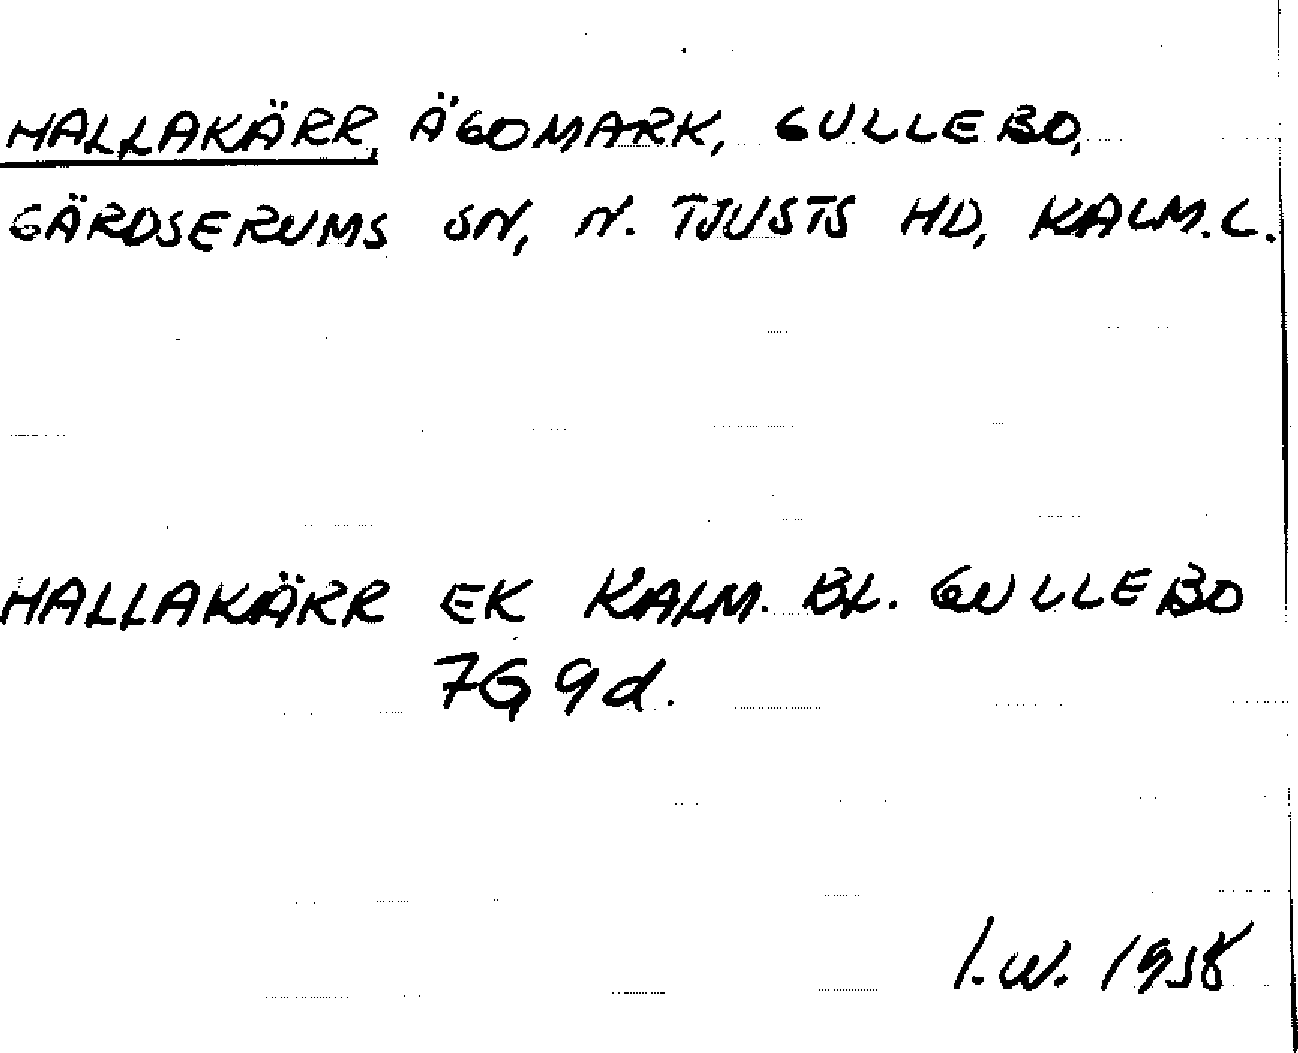 HALLAKÄRR, ÄGOMARK, GULLEBO,
GÄRDSERUMS SN, N. TJUSTS HD, KALM. L.
HALLAKÄRR EK KALM. BL. GULLEBO
7G 9d.
I.W. 1958